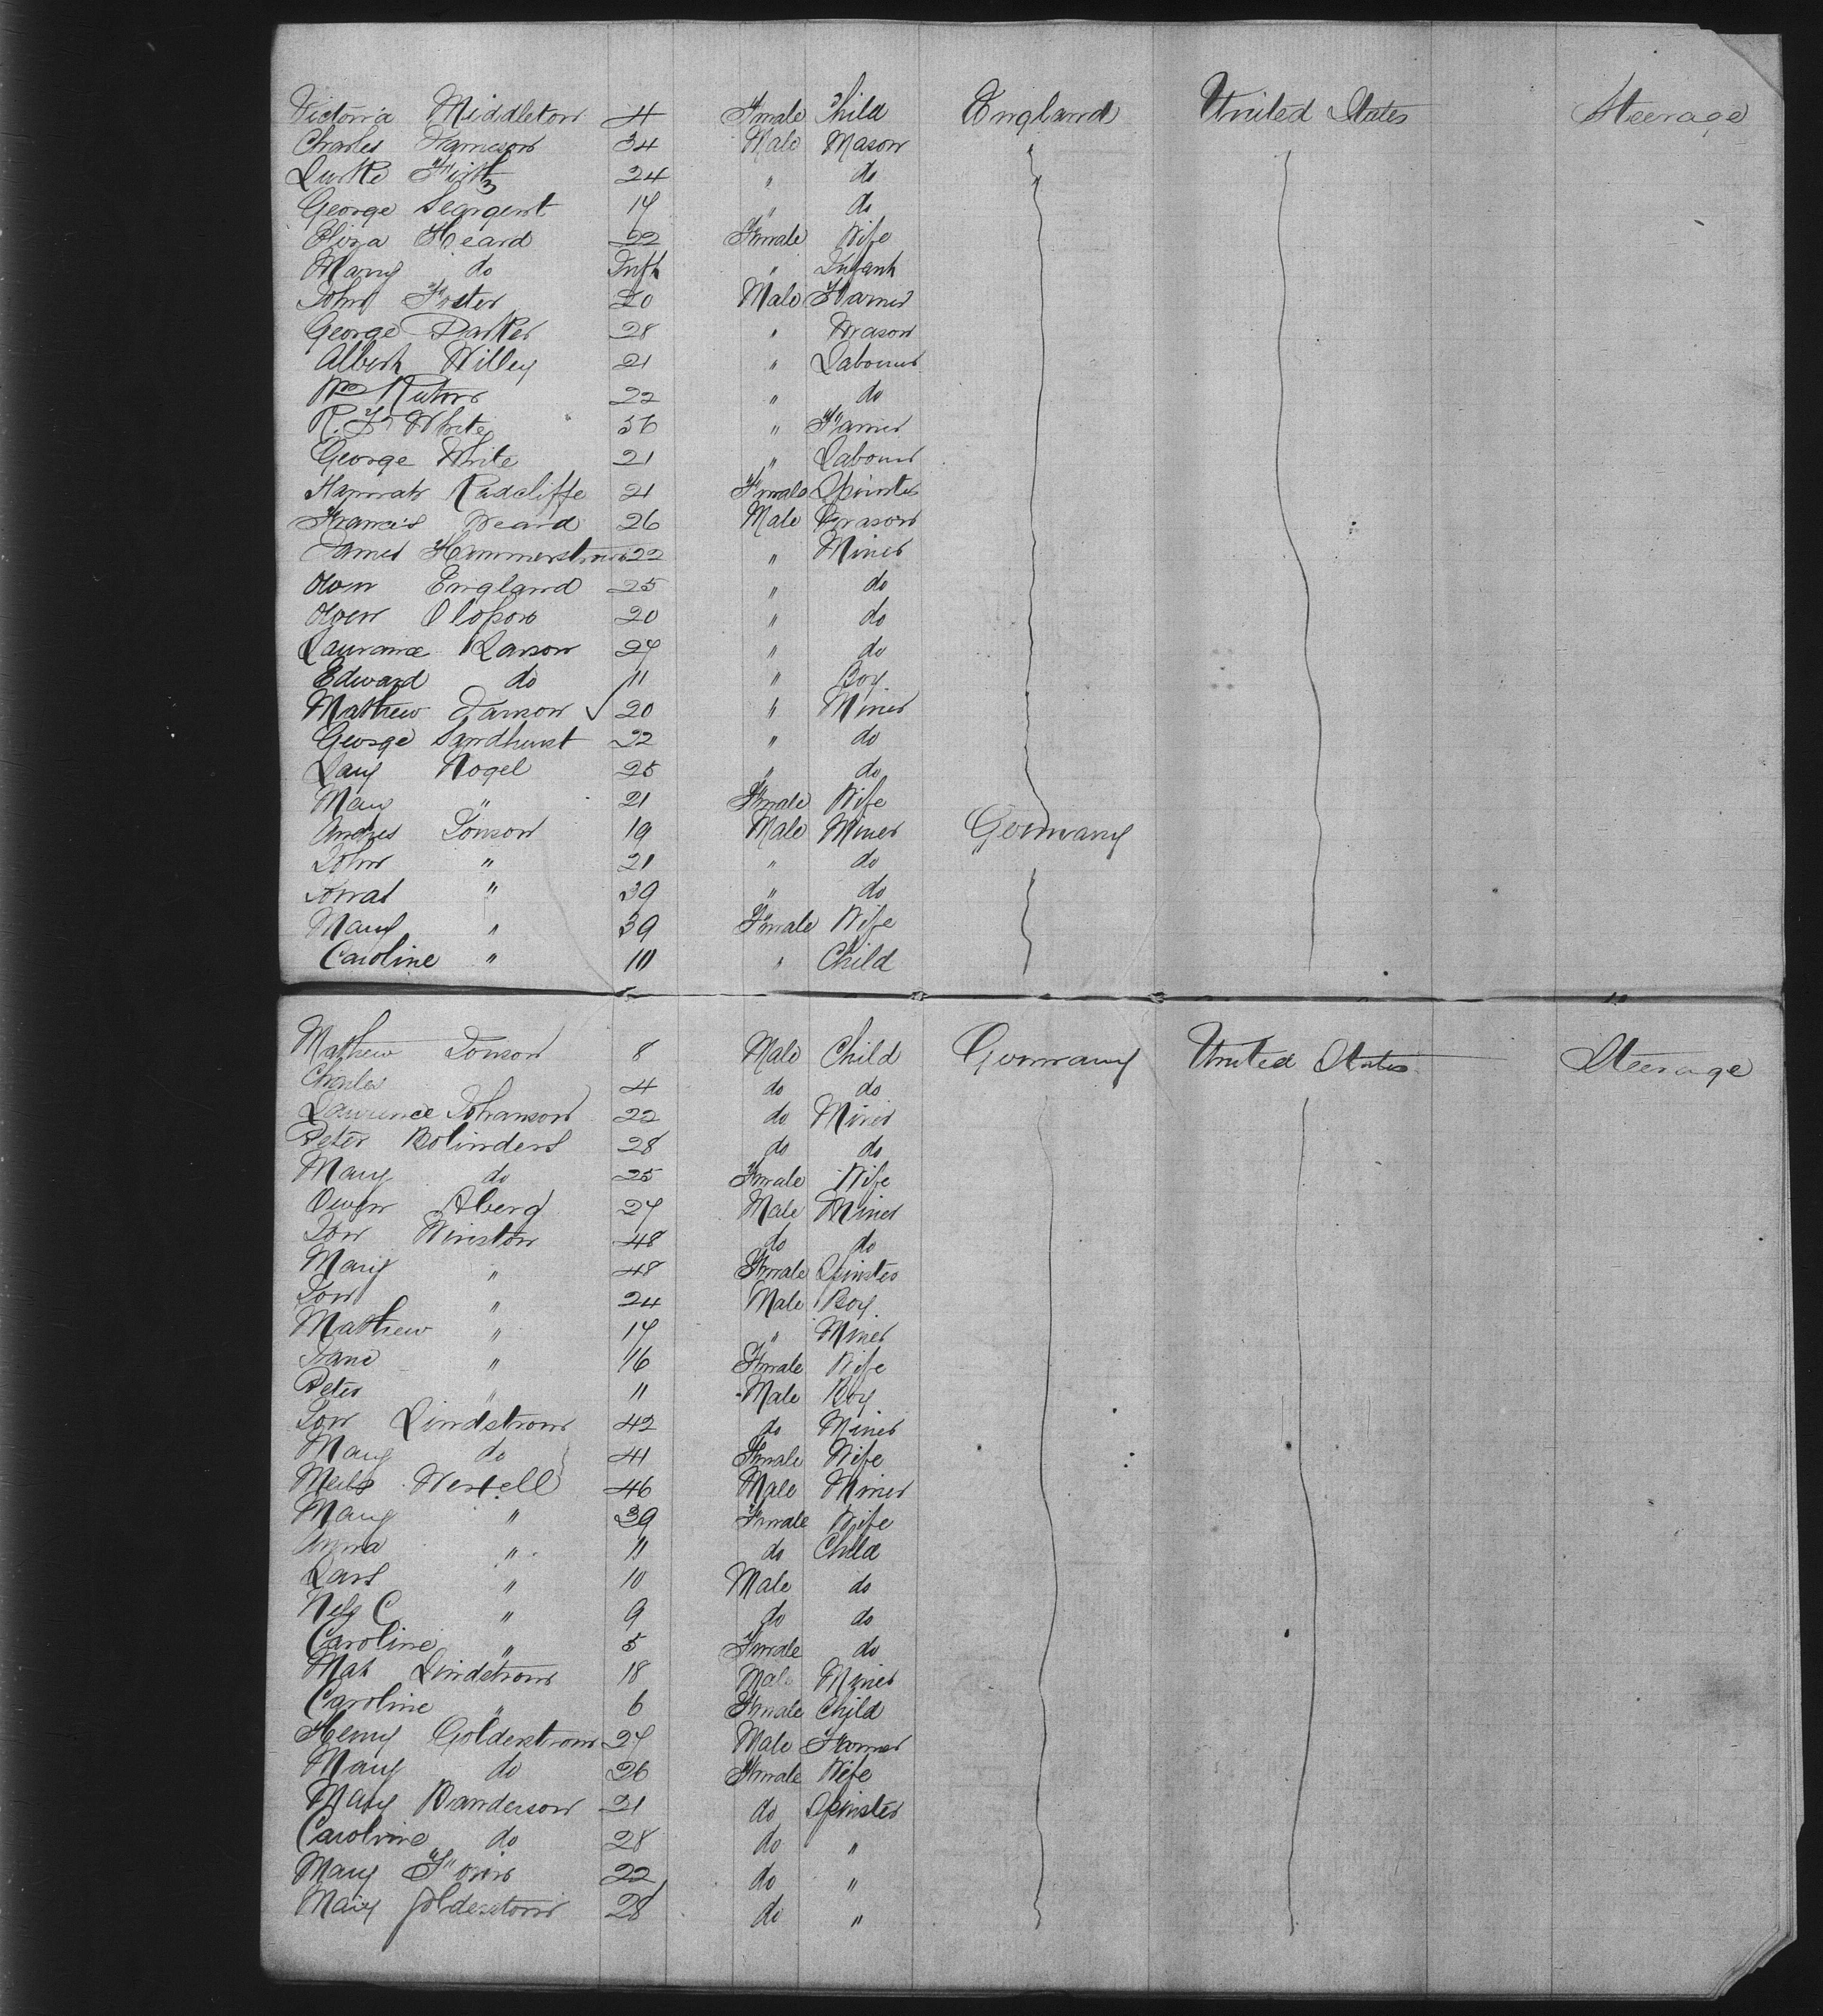 Victoria Middleton 4 Female Child England United States Steerage
Charles 34 Male Mason
Luke Firth 24 " do
George Seargent 17 " do
Eliza Heard 22 Female Wife
Mary do Inft Infant
John Foster 20 Male Farmer
George Parker 28 " Mason
Albert Willey 21 " Labourer
Wm 22 " do
R. F. White 36 " Farmer
George White 21 " Labourer
Hannah Radcliffe 21 Female Spinster
Francis 26 Male Mason
James 22 " Miner
Owen England 25 " do
Owen 20 " do
Laurance Larson 27 " do
Edward do 11 " Boy
Mathew 20 " Miner
George Sandhurst 22 " do
Nogel 25 " do
Mary " 21 Female Wife
Andres Jonson 19 Male Miner Germany
John " 21 " do
" 39 " do
Mary " 39 Female Wife
Caroline " 10 " Child
Mathew Jonson 8 Male Child Germany United States Steerage
Charles 4 do do
Lawrence Johanson 22 do Miner
Peter Bolinders 28 do do
Mary do 25 Female Wife
Owen Aberg 27 Male Miner
Jon Winston 48 do do
Mary " 48 Female Spinster
Jon " 24 Male Boy
Mathew " 17 " Miner
Jane " 16 Female Wife
Peter " 11 Male Boy
Jon Lindstrom 42 do Miner
Mary do 41 Female Wife
Wexell 46 Male Miner
Mary " 39 Female Wife
Anna " 11 do Child
Lars " 10 Male do
Nels C " 9 do do
Caroline " 5 Female do
Mat Lindstrom 18 Male Miner
Caroline " 6 Female Child
Henry Golderstrom 27 Male Farmer
Mary do 26 Female Wife
Mary Banderson 21 do Spinster
Caroline do 28 do "
Mary 22 do "
Mary Golderstrom 28 do "